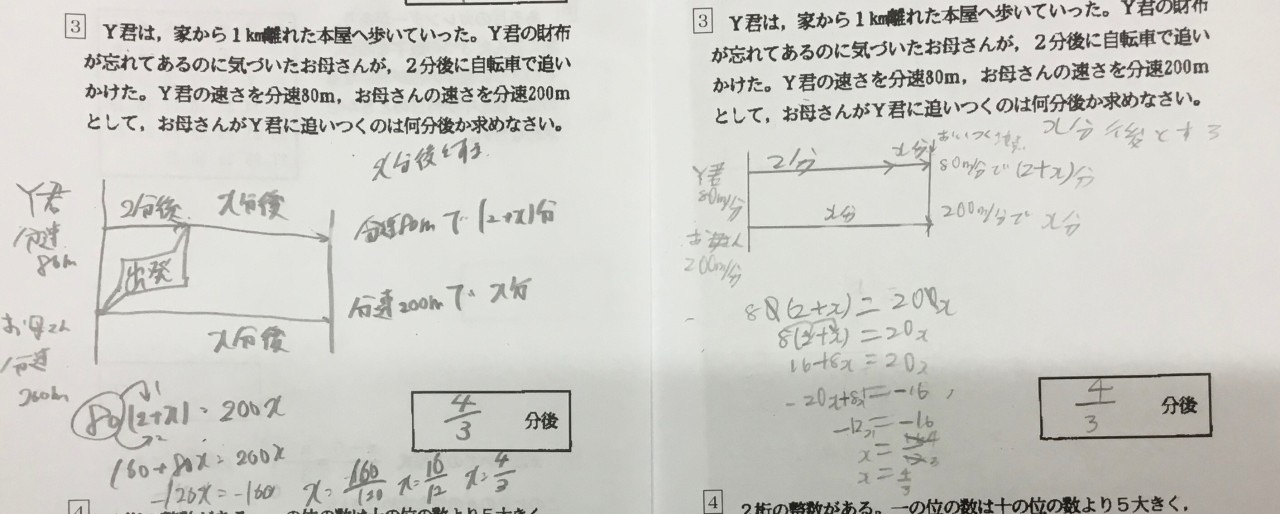 3 Y君は，家から1km離れた本屋へ歩いていった。Y君の財布
が忘れてあるのに気づいたお母さんが，2分後に自転車で追い
かけた。Y君の速さを分速80m，お母さんの速さを分速200m
として，お母さんがY君に追いつくのは何分後か求めなさい。
x分後とする
Y君
分速
80m
2分後 x分後
出発
分速80mで(2+x)分
お母さん
分速
200m
x分後
分速200mでx分
80(2+x)=200x
160+80x=200x
-120x=-160 x=160/120 x=16/12 x=4/3
4/3 分後
4
3 Y君は，家から1km離れた本屋へ歩いていった。Y君の財布
が忘れてあるのに気づいたお母さんが，2分後に自転車で追い
かけた。Y君の速さを分速80m，お母さんの速さを分速200m
として，お母さんがY君に追いつくのは何分後か求めなさい。
x分後とする
Y君
80m/分
2分 x分
80m/分で(2+x)分
お母さん
200m/分
x分
200m/分でx分
80(2+x)=200x
8(2+x)=20x
16+8x=20x
-20x+8x=-16
-12x=-16
x=
x=4/3
4/3 分後
4 2桁の整数がある。一の位の数は十の位の数より5大きく，